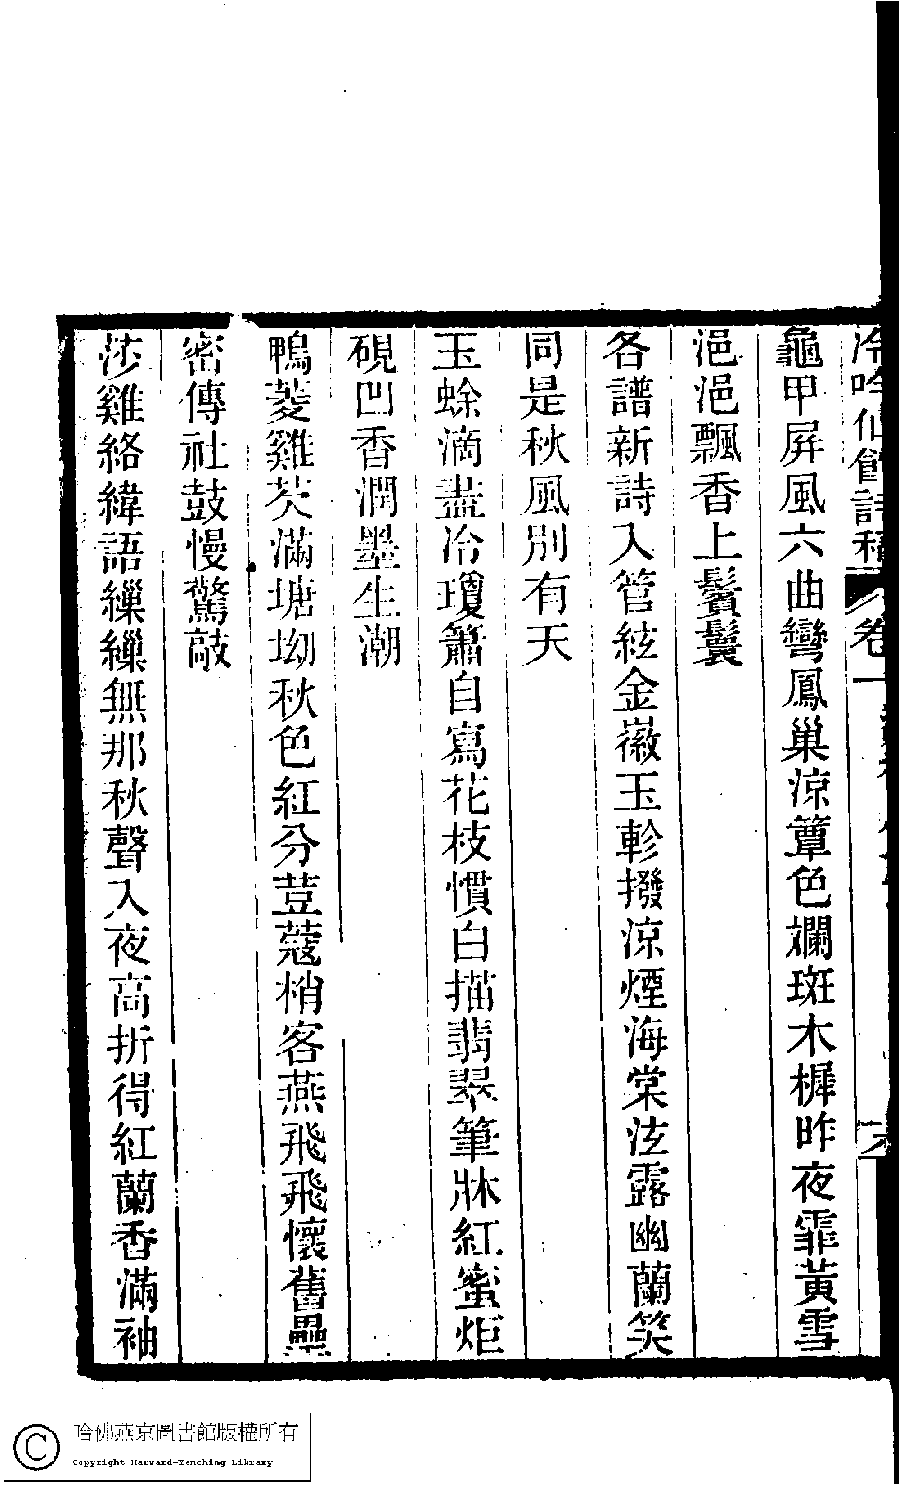 冷吟仙館詩稿 卷一
龜甲屏風六曲彎鳳巢涼簟色斕斑木樨昨夜霏黃雪
浥浥飄香上鬢鬟
各譜新詩入管絃金徽玉軫撥涼煙海棠泫露幽蘭笑
同是秋風別有天
玉蜍滴盡冷瓊簫自寫花枝慣白描翡翠筆牀紅蜜炬
硯凹香潤墨生潮
鴨菱雞芡滿塘坳秋色紅分荳蔻梢客燕飛飛懷舊壘
密傳社鼓慢驚敲
莎雞絡緯語纙纙無那秋聲入夜高折得紅蘭香滿袖
哈佛燕京圖書館版權所有
Copyright Harvard-Yenching Library